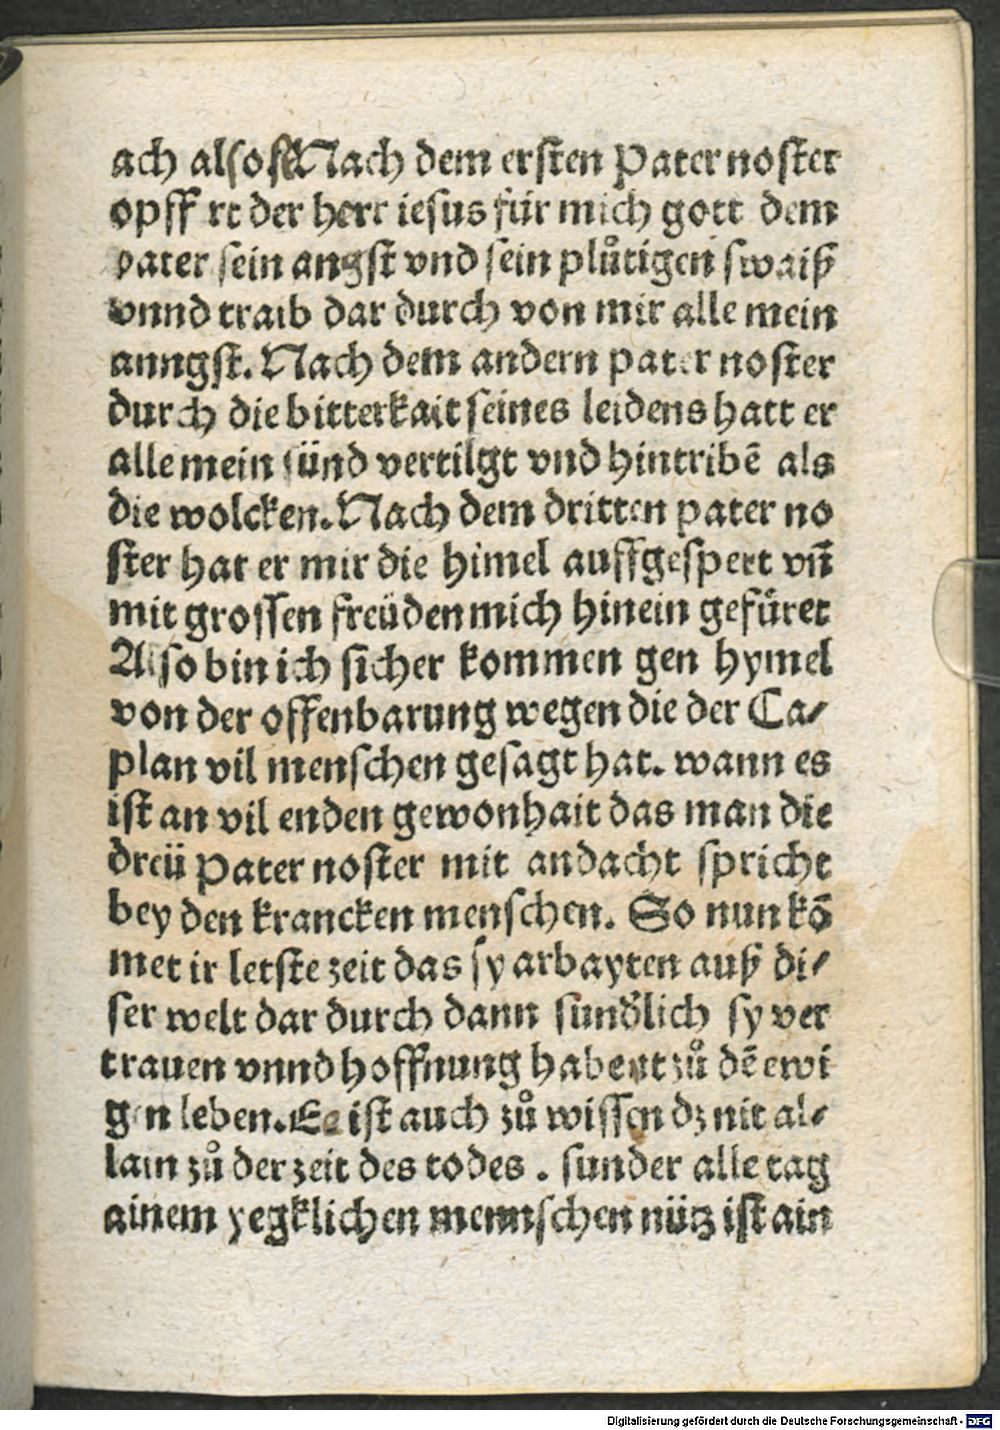 ach also Nach dem ersten Pater noster
opff rt der herr iesus für mich gott dem
vater sein angst vnd sein plůtigen swaiß
vnnd traib dar durch von mir alle mein
anngst. Nach dem andern pater noster
durch die bitterkait seines leidens hatt er
alle mein sünd vertilgt vnd hintribē als
die wolcken. Nach dem dritten pater no
ster hat er mir die himel auffgespert vn̄
mit grossen freüden mich hinein gefüret
Also bin ich sicher kommen gen hymel
von der offenbarung wegen die der Ca⸗
plan vil menschen gesagt hat. wann es
ist an vil enden gewonhait das man die
dreü Pater noster mit andacht spricht
bey den krancken menschen. So nun kō
met ir letste zeit das sy arbayten auß di⸗
ser welt dar durch dann sunðlich sy ver
trauen vnnd hoffnung habent zů dē ewi
gen leben. Es ist auch zů wissen dz nit al⸗
lain zů der zeit des todes . sunder alle tag
ainem yegklichen mennschen nütz ist ain
Digitalisierung gefördert durch die Deutsche Forschungsgemeinschaft - DFG